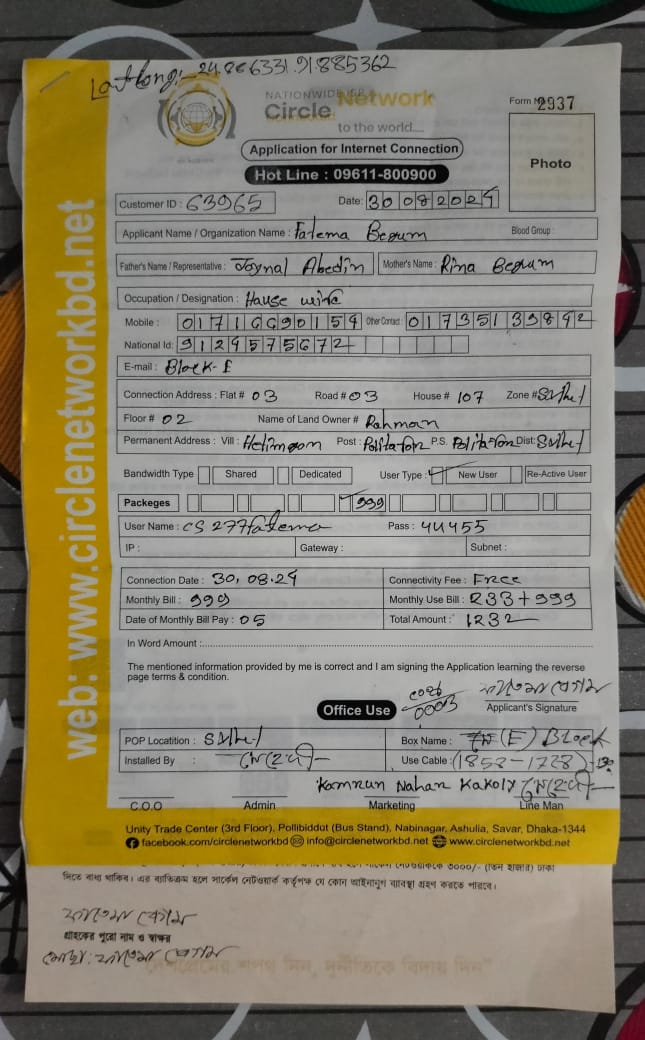 Lat Long:- 24.866331.91885362
NATIONWIDE ISP
Circle Network
to the world....
Form No 2937
Application for Internet Connection
Hot Line : 09611-800900
Photo
Customer ID : 63965 Date: 30 08 2024
Applicant Name / Organization Name : Fatema Begum Blood Group :
Father's Name / Representative : Joynal Abedin Mother's Name : Rina Begum
Occupation / Designation : Hause wife
Mobile : 01716690154 Other Contact : 01735139842
National Id: 9124575672
E-mail : Block-E
Connection Address : Flat # 03 Road # 03 House # 107 Zone # Sylhet
Floor # 02 Name of Land Owner # Rahman
Permanent Address : Vill : Post : P.S. Dist: Sylhet
Bandwidth Type Shared Dedicated User Type : New User Re-Active User
Packeges 999
User Name : CS277fatema Pass : 44455
IP : Gateway : Subnet :
Connection Date : 30.08.24 Connectivity Fee : Free
Monthly Bill : 999 Monthly Use Bill : 233+999
Date of Monthly Bill Pay : 05 Total Amount : 1232
In Word Amount :
The mentioned information provided by me is correct and I am signing the Application learning the reverse
page terms & condition.
ফাতেমা বেগম
Office Use Applicant's Signature
POP Locatition : Sylhet Box Name : (E) Block
Installed By : Use Cable : (1858-1728)
Komrun Nahar Kakoly
C.O.O Admin Marketing Line Man
Unity Trade Center (3rd Floor), Pollibiddut (Bus Stand), Nabinagar, Ashulia, Savar, Dhaka-1344
facebook.com/circlenetworkbd info@circlenetworkbd.net www.circlenetworkbd.net
web: www.circlenetworkbd.net
৩০০০/- (তিন হাজার) টাকা
দিতে বাধ্য থাকিব। এর ব্যতিক্রম হলে সার্কেল নেটওয়ার্ক কর্তৃপক্ষ যে কোন আইনানুগ ব্যবস্থা গ্রহণ করতে পারবে।
ফাতেমা বেগম
গ্রাহকের পুরো নাম ও স্বাক্ষর
মোছা: ফাতেমা বেগম
দেশপ্রেমের শপথ নিন, দুর্নীতিকে বিদায় দিন"